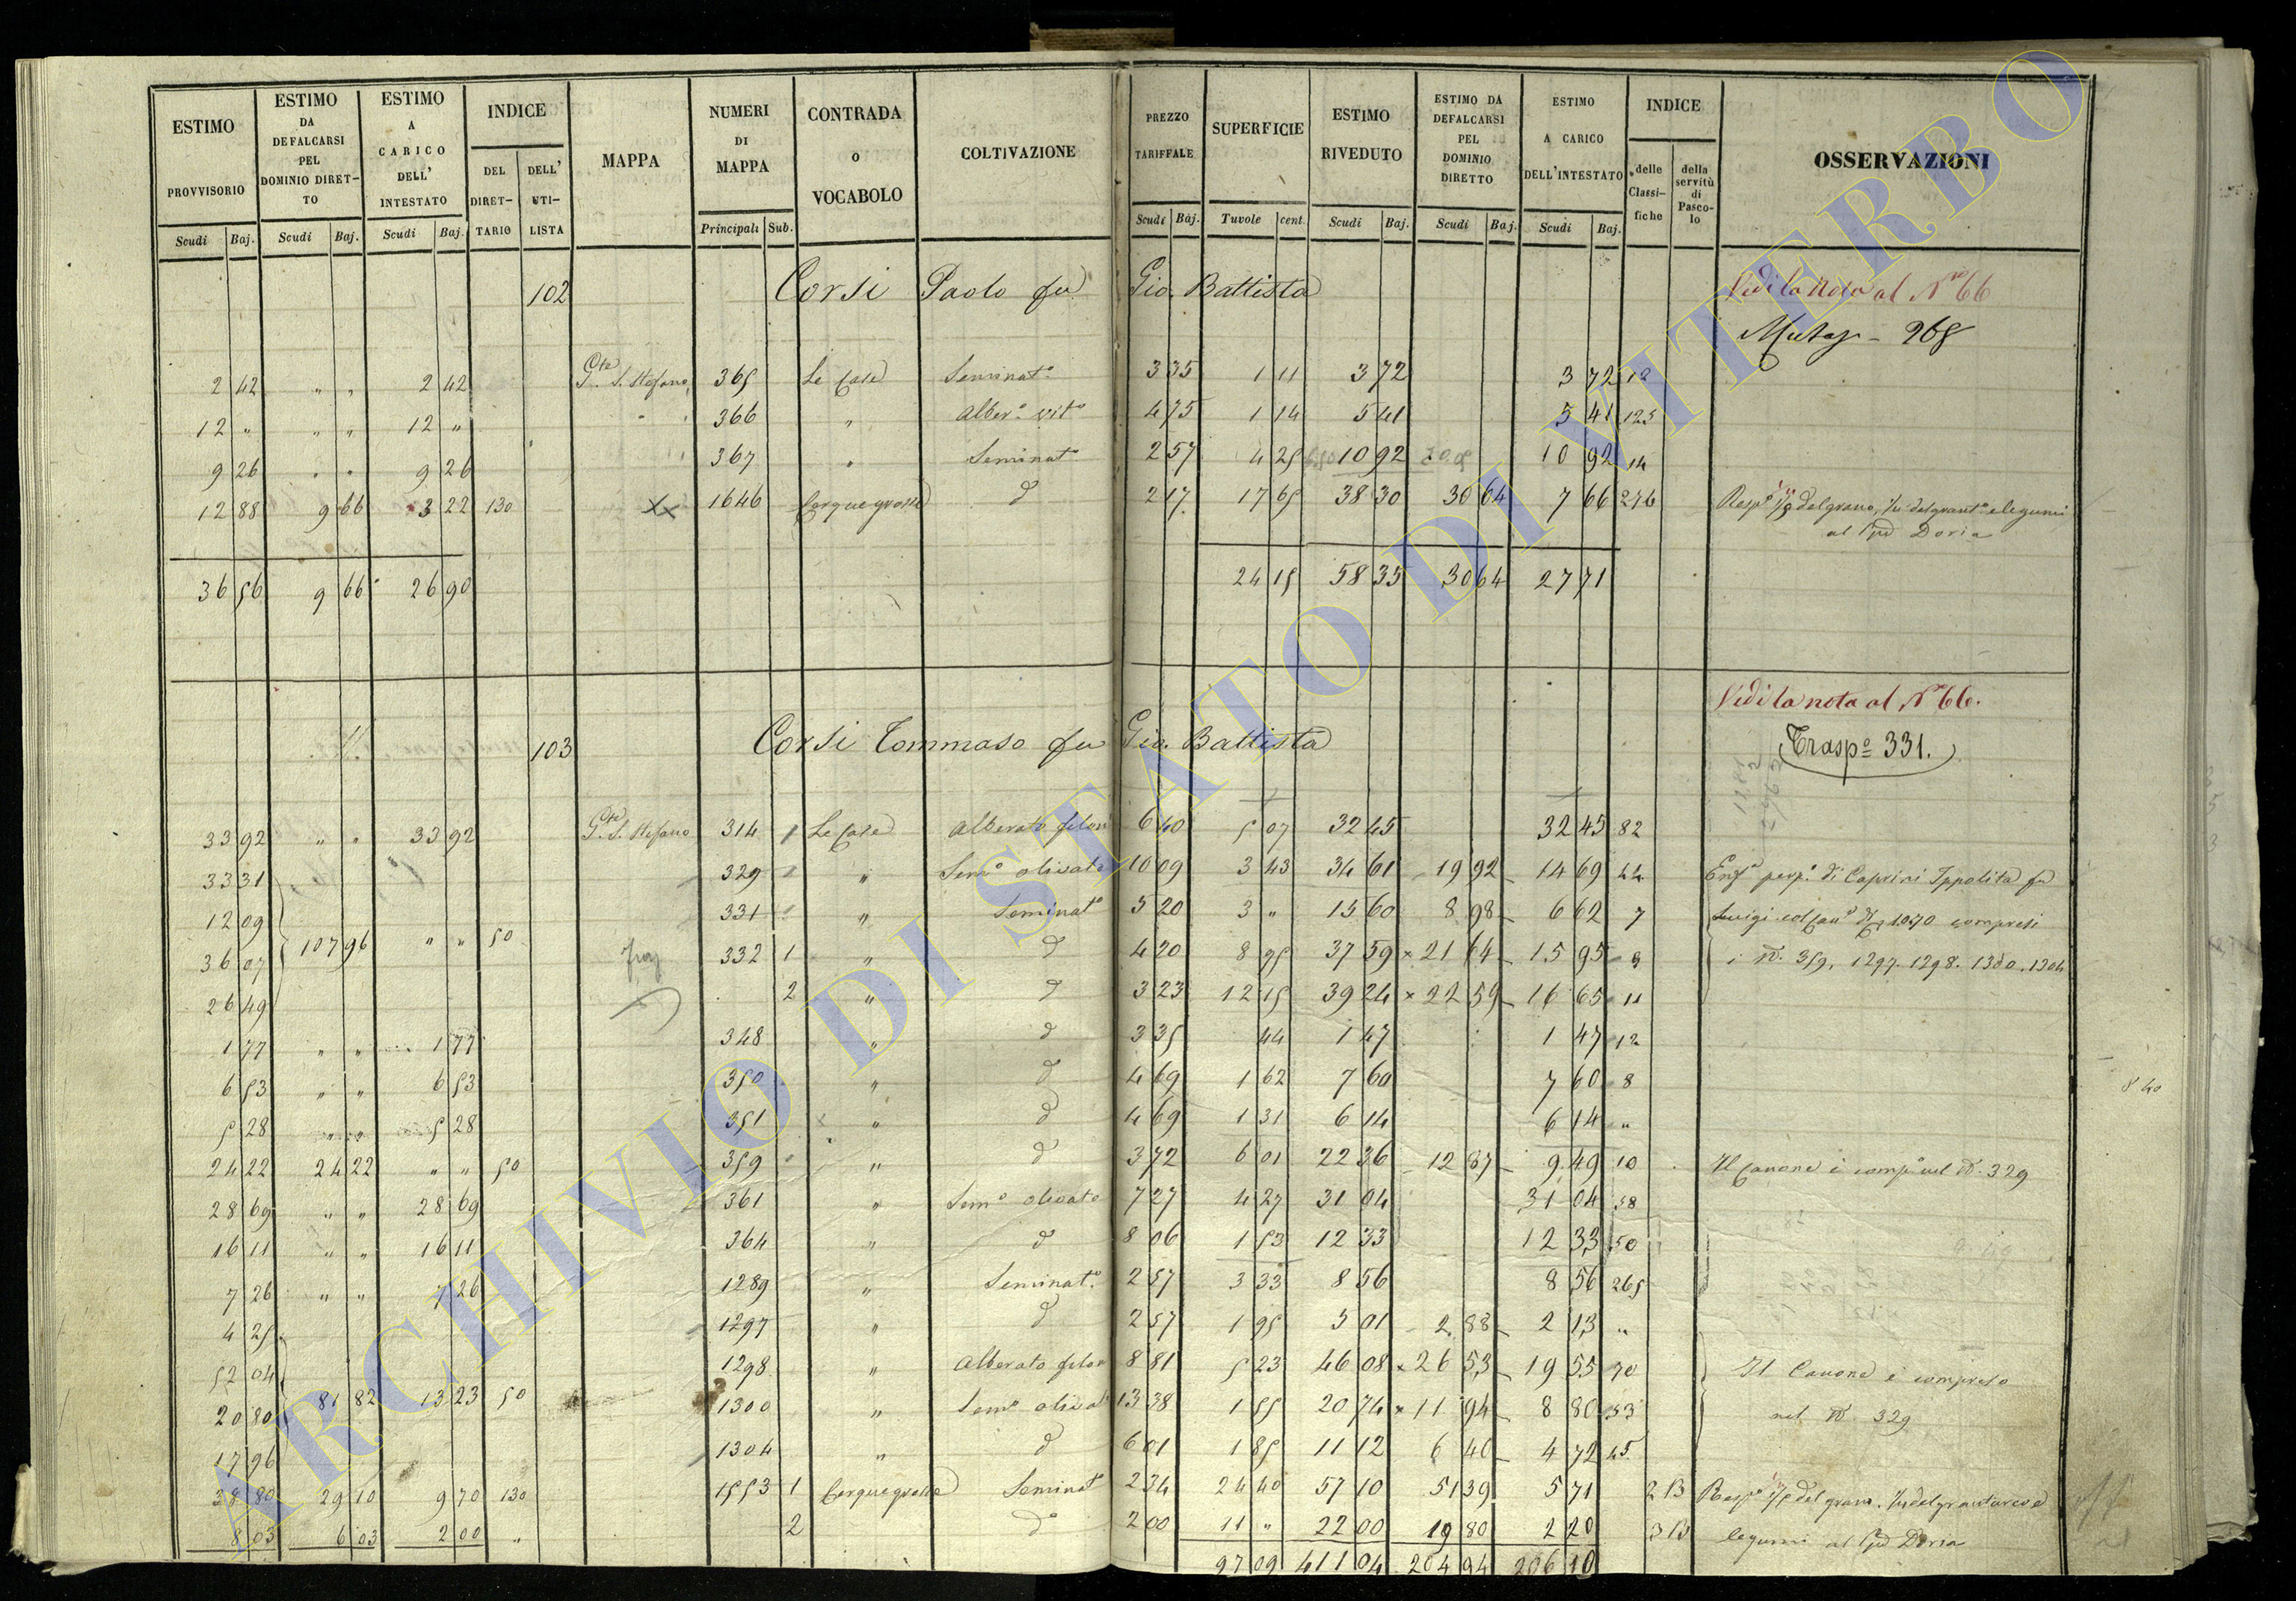 ESTIMO PROVVISORIO Scudi Baj. | ESTIMO DA DEFALCARSI PEL DOMINIO DIRET-TO Scudi Baj. | ESTIMO A CARICO DELL' INTESTATO Scudi Baj. | INDICE DEL DIRET-TARIO | DELL' UTI-LISTA | MAPPA | NUMERI DI MAPPA Principali Sub. | CONTRADA O VOCABOLO | COLTIVAZIONE | PREZZO TARIFFALE Scudi Baj. | SUPERFICIE Tavole cent. | ESTIMO RIVEDUTO Scudi Baj. | ESTIMO DA DEFALCARSI PEL DOMINIO DIRETTO Scudi Baj. | ESTIMO A CARICO DELL'INTESTATO Scudi Baj. | INDICE delle Classi-fiche | della servitù di Pasco-lo | OSSERVAZIONI
102 Corsi Paolo fu Gio. Battista Vedi la nota al N° 66
268
2 42 " " 2 42 Gte S. Stefano 365 Le Case Seminato 3 35 1 11 3 72 3 72 12
12 " " " 12 " 366 " Alber° vit° 4 75 1 14 5 41 5 41 125
9 26 " " 9 26 367 " Seminat° 2 57 4 25 10 92 10 92 14
12 88 9 66 3 22 130 1646 Cerquegrosse d 2 17 17 65 38 30 30 64 7 66 276 Resp° 1/5 del grano,
al Doria
36 56 9 66 26 90 24 15 58 35 30 64 27 71
Vedi la nota al N° 66.
103 Corsi Tommaso fu Gio. Battista Trasp° 331.
33 92 " " 33 92 Gte S. Stefano 314 Le Case Alberato filon 6 40 5 07 32 45 32 45 82
33 31 329 " Sem° olivato 10 09 3 43 34 61 19 92 14 69 44 Enf° perp° di Caprini Ippolita fu
12 09 331 " Seminat° 5 20 3 " 15 60 8 98 6 62 7 Luigi col Can° 10.70 compresi
36 07 107 96 " " 50 332 1 " d 4 20 8 95 37 59 21 64 15 95 9 i N. 359. 1297. 1298. 1300. 1304
26 49 2 " d 3 23 12 15 39 24 22 59 16 65 11
1 77 " " 1 77 348 " d 3 35 44 1 47 1 47 12
6 53 " " 6 53 350 " d 4 69 1 62 7 60 7 60 8
5 28 " " 5 28 351 " d 4 69 1 31 6 14 6 14 "
24 22 24 22 " " 50 359 " d 3 72 6 01 22 36 12 87 9 49 10 Il canone è comp° nel N. 329
28 69 " " 28 69 361 " Sem° olivato 7 27 4 27 31 04 31 04 58
16 11 " " 16 11 364 " d 8 06 1 53 12 33 12 33 50
7 26 " " 7 26 1289 " Seminat° 2 57 3 33 8 56 8 56 265
4 25 1297 " d 2 57 1 95 5 01 2 88 2 13 "
52 04 1298 " Alberato filon 8 81 5 23 46 08 26 53 19 55 70 Il Canone è compreso
20 80 81 82 13 23 50 1300 " Sem° olivat 13 38 1 55 20 74 11 94 8 80 33 nel N. 329
17 96 1304 " d 6 01 1 85 11 12 6 40 4 72 45
38 80 29 10 9 70 130 1553 1 Cerquegrosse Seminat° 2 34 24 40 57 10 51 39 5 71 213 Resp° 1/5 del grano,
8 03 6 03 2 00 " 2 d° 2 00 11 " 22 00 19 80 2 20 legumi al Doria
97 09 411 04 204 94 206 10
8 40
ARCHIVIO DI STATO DI VITERBO